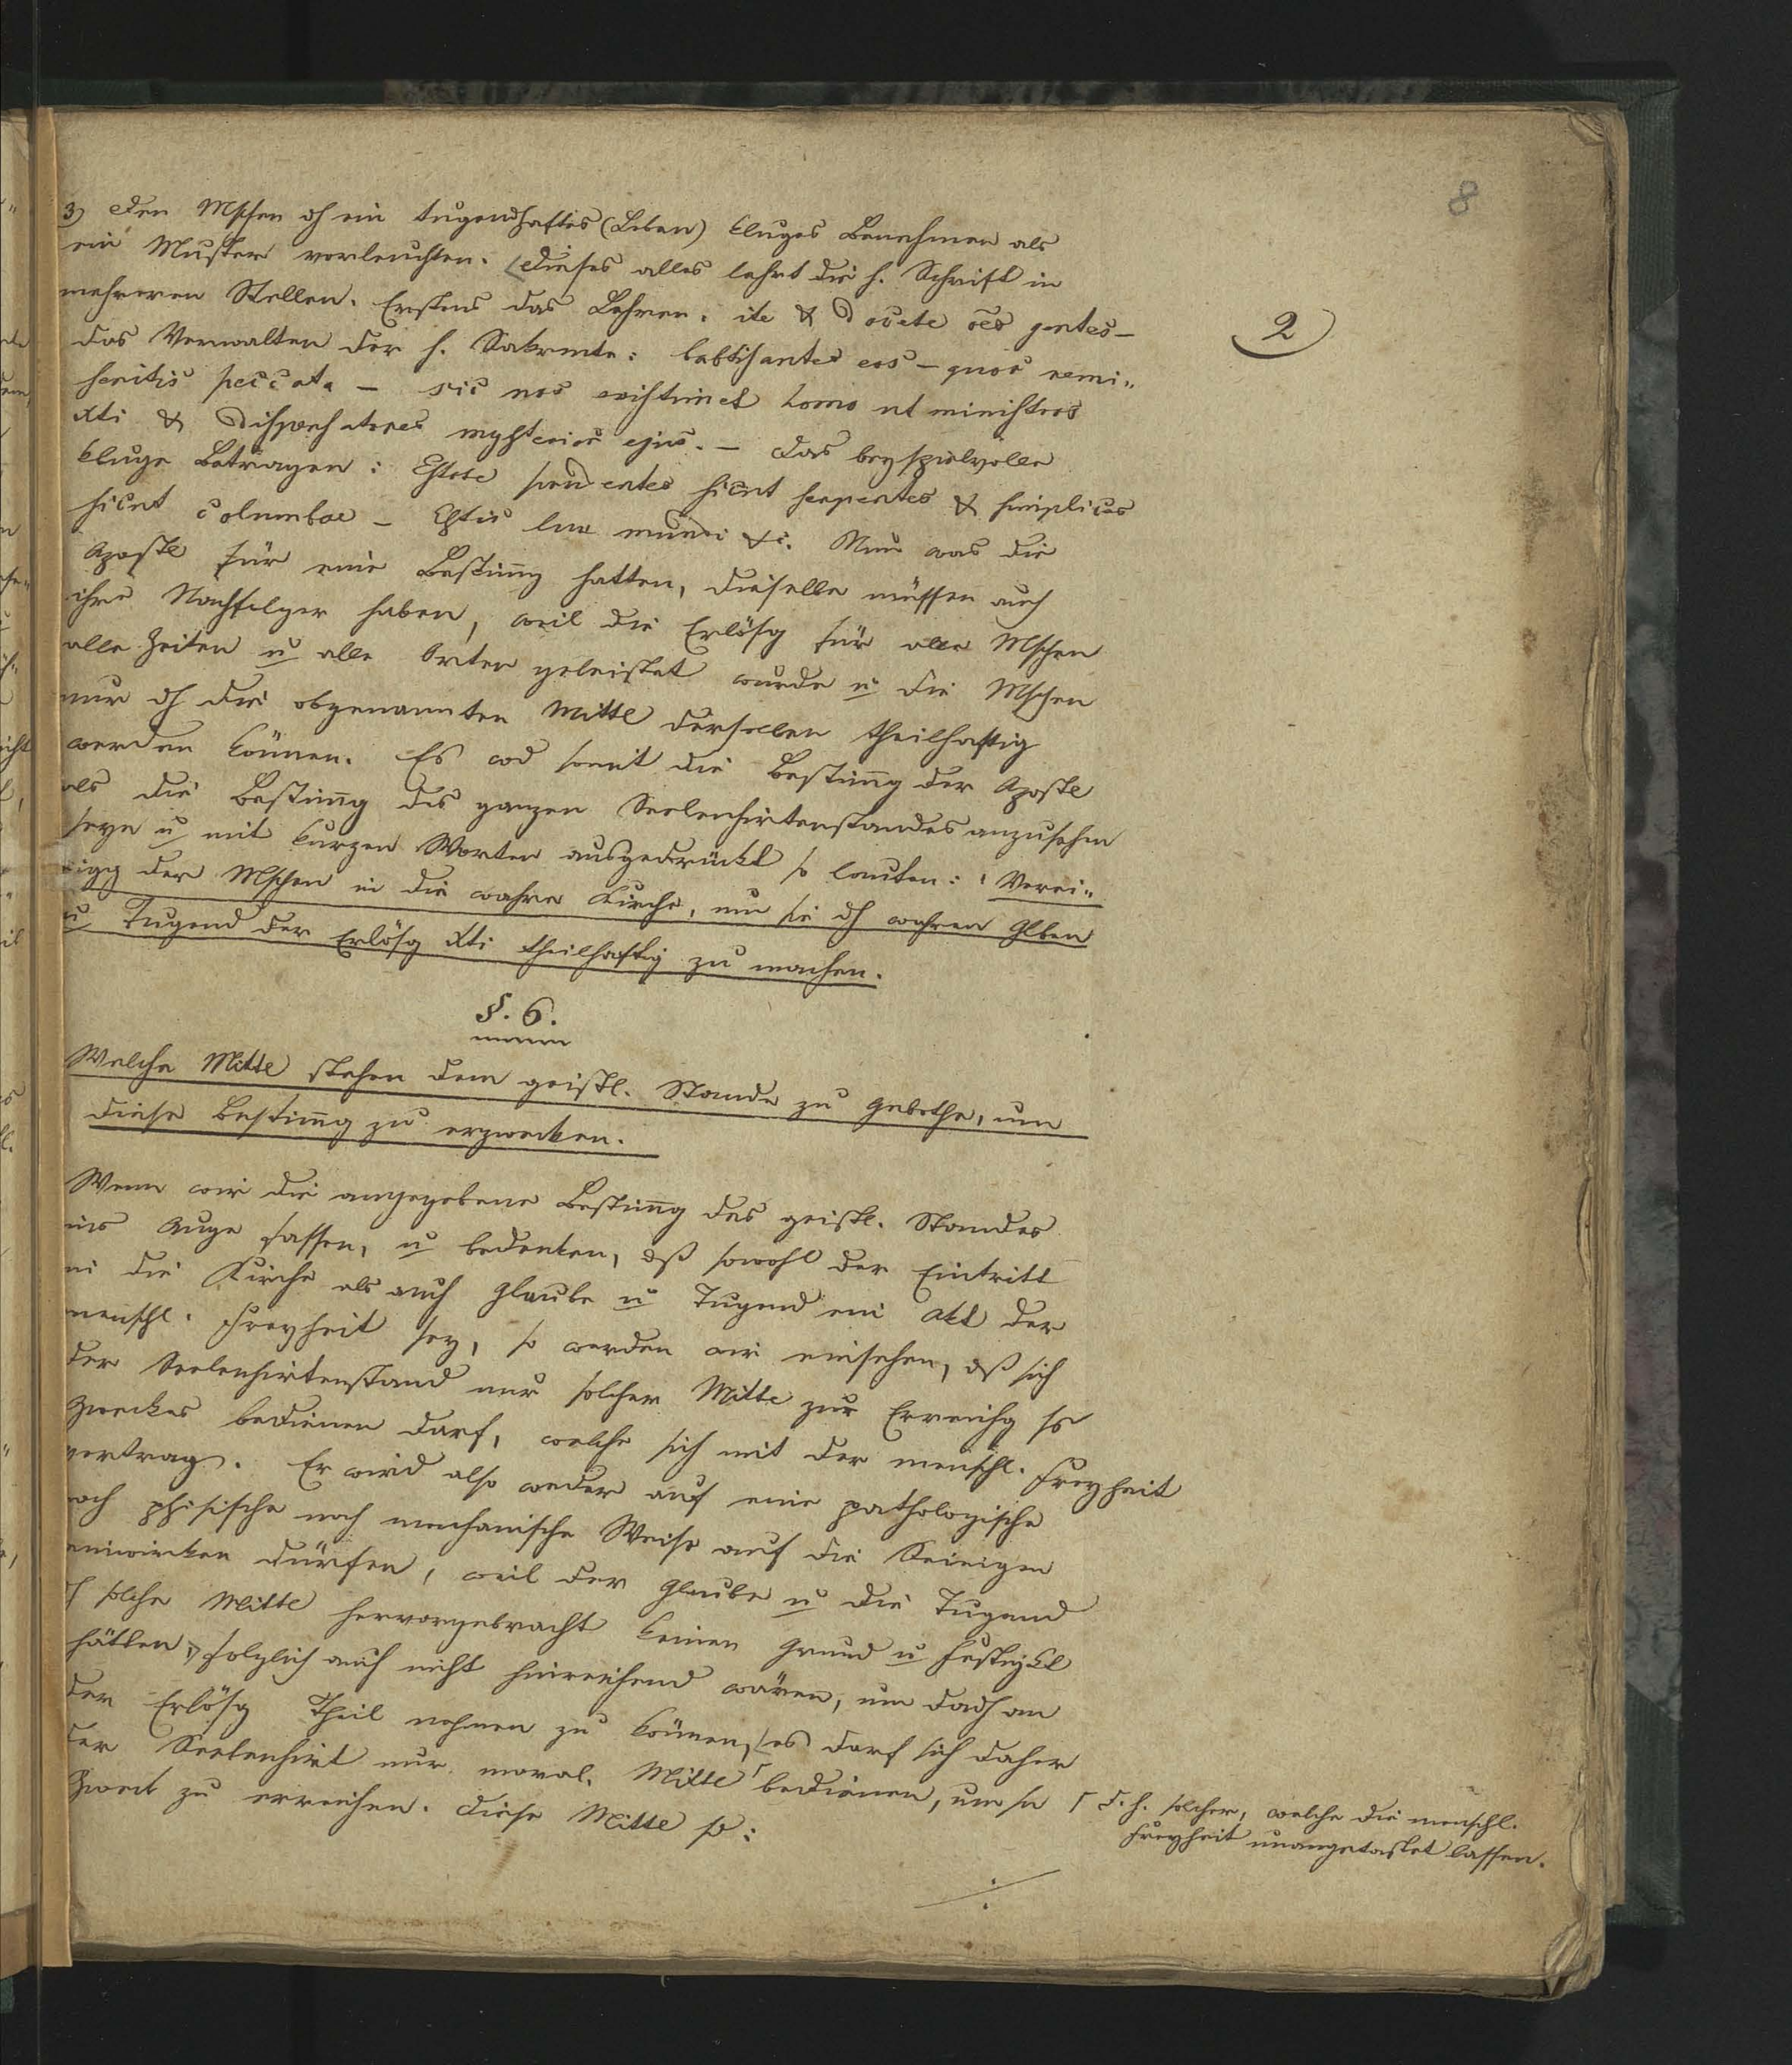 8
2
3) Den Mschen dh ein tugendhaftes (Leben) kluges Benehmen als
ein Muster vorleuchten. Dieses alles lehrt die h. Schrift in
mehreren Stellen. Erstens das Lehren: ite & docete oēs gentes –
das Verwalten der h. Sakrmente: babtisantes eos – quor remi„
seritis peccata – sic nos existimet homo ut ministros
Xti & dispensatores mysterior ejus. – das beyspielvolle
kluge Betragen: Estote prudentes sicut serpentes & simplices
sicut columbae – Estis lux mundi &c. Nun was die
Apostl für eine Bestimg hatten, dieselbe müssen auch
ihre Nachfolger haben, weil die Erlösg für alle Mschen
alle Zeiten u alle Orten geleistet wurde u die Mschen
nur dh die obgenannten Mittl derselben theilhaftig
werden können. Es wd somit die Bestimg der Apostl
als die Bestimg des ganzen Seelenhirtenstandes anzusehn
seyn u mit kurzen Worten ausgedrückt so lauten: Verei„
nigg der Mschen in die wahre Kirche, um sie dh wahren Glben
u Tugend der Erlösg Xti theilhaftig zu machen.
§. 6.
Welche Mittl stehen dem geistl. Stande zu Gebothe, um
diese Bestimg zu erzwecken.
Wenn wir die angegebene Bestimg des geistl. Standes
ins Auge fassen, u bedenken, dß sowohl der Eintritt
in die Kirche als auch Glaube u Tugend ein Akt der
menschl. Freyheit sey, so werden wir einsehen, dß sich
der Seelenhirtenstand nur solcher Mittl zur Erreichg ss
Zweckes bedienen darf, welche sich mit der menschl. Freyheit
vertrag. Er wird also weder auf eine pathologische
noch phisische noch mechanische Weise auf die Seinigen
einwirken dürfen, weil der Glaube u die Tugend
dh solche Mittl hervorgebracht keinen Grund u Festigkt
hätten, folglich auch nicht hinreichend wären, um dadh an
der Erlösg Theil nehmen zu können, es darf sich daher
der Seelenhirt nur moral. Mittl bedienen, um sn
Zweck zu erreichen. Diese Mittl sd:
d. h. solcher, welche die menschl.
Freyheit unangetastet lassen.